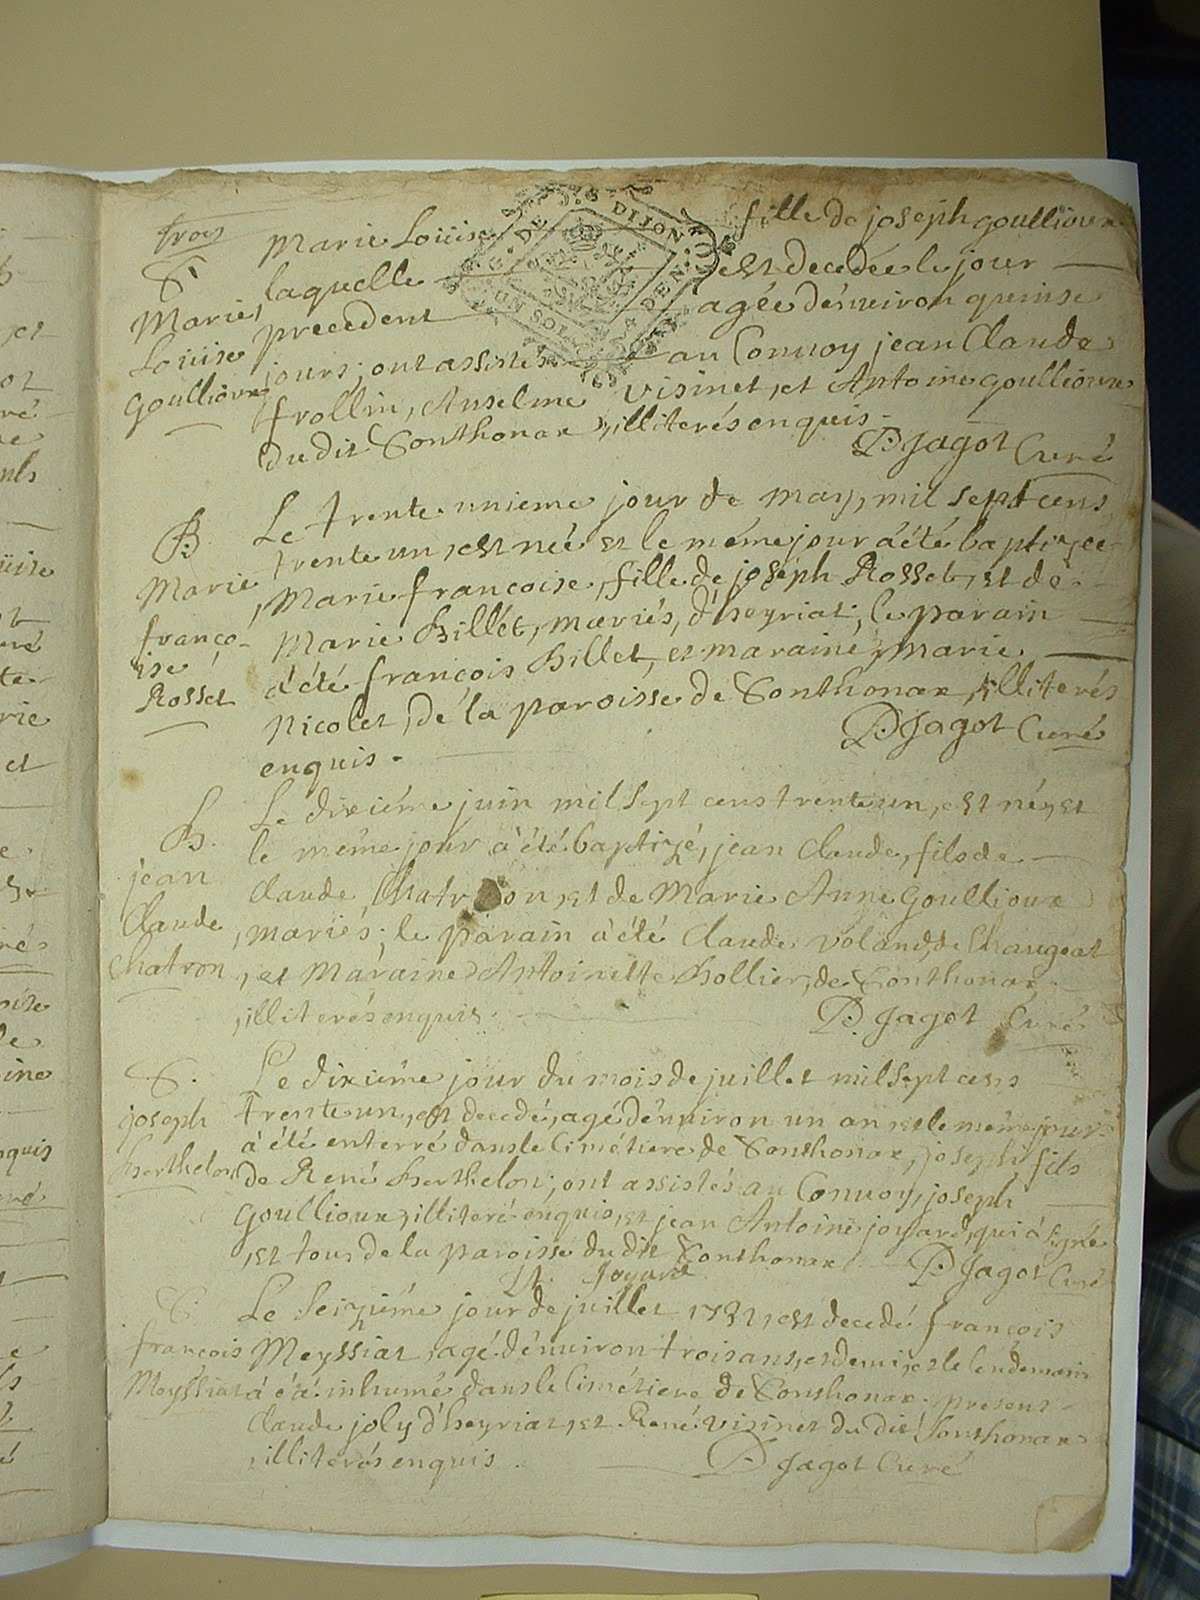 trois
S.
Marie
Louise
Goullioux
Marie Louise fille de joseph goullioux
laquelle est decedée le jour
precedent agée d'enuiron quinse
jours; ont assistés au Conuoy jean Claude
frollin, Anselme Visinet, et Antoine goullioux
du dit Sonthonax, illiterés enquis.
P. Jagot Curé
G. DE DIJON
UN SOL
DEN
B.
Marie
franço-
ise
Rosset
Le trente unieme jour de may, mil sept cens
trente un, est née et le même jour à été baptizée
Marie francoise, fille de joseph Rosset, et de
Marie Billet, mariés, d'heyriat; le parain
à été françois Billet, et maraine, Marie
Nicolet, de la paroisse de Sonthonax, illiterés
enquis.
P. Jagot Curé
B.
jean
Claude
Chatron
Le dixiéme juin mil sept cens trente un, est né, et
le même jour à été baptizé, jean Claude, fils de
Claude Chatron, et de Marie Anne Goullioux
mariés; le parain à été Claude Voland, de Chaugeat
, et Maraine Antoinette Bollier, de Sonthonax
, illiterés enquis.
P. Jagot Curé
S.
joseph
Berthelon
Le dixiéme jour du mois de juillet mil sept cens
trente un, est decedé, agé d'enuiron un an, et le même jour
à été enterré dans le cimétiere de Sonthonax, joseph fils
de René Berthelon; ont assistés au Conuoy, joseph
Goullioux, illiteré enquis, et jean Antoine joyard, qui à signé
, et tous de la paroisse du dit Sonthonax P. Jagot Curé
Joyard
S.
françois
Meyssiat
Le seiziéme jour de juillet 1731, est decedé françois
Meyssiat, agé d'enuiron trois ans, et demi, et le lendemain
à été inhumé dans le cimétiere de Sonthonax, present
Claude joly d'heyriat, et René Visinet du dit Sonthonax
, illiterés enquis.
P. Jagot Curé